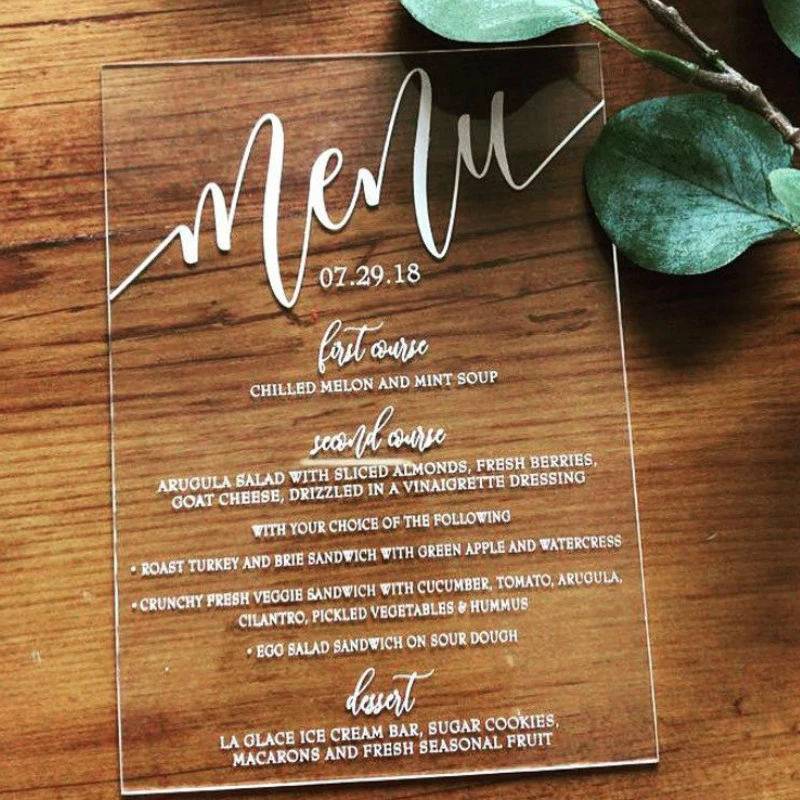 menu
07.29.18
first course
CHILLED MELON AND MINT SOUP
second course
ARUGULA SALAD WITH SLICED ALMONDS, FRESH BERRIES,
GOAT CHEESE, DRIZZLED IN A VINAIGRETTE DRESSING
WITH YOUR CHOICE OF THE FOLLOWING
• ROAST TURKEY AND BRIE SANDWICH WITH GREEN APPLE AND WATERCRESS
• CRUNCHY FRESH VEGGIE SANDWICH WITH CUCUMBER, TOMATO, ARUGULA,
CILANTRO, PICKLED VEGETABLES & HUMMUS
• EGG SALAD SANDWICH ON SOUR DOUGH
dessert
LA GLACE ICE CREAM BAR, SUGAR COOKIES,
MACARONS AND FRESH SEASONAL FRUIT